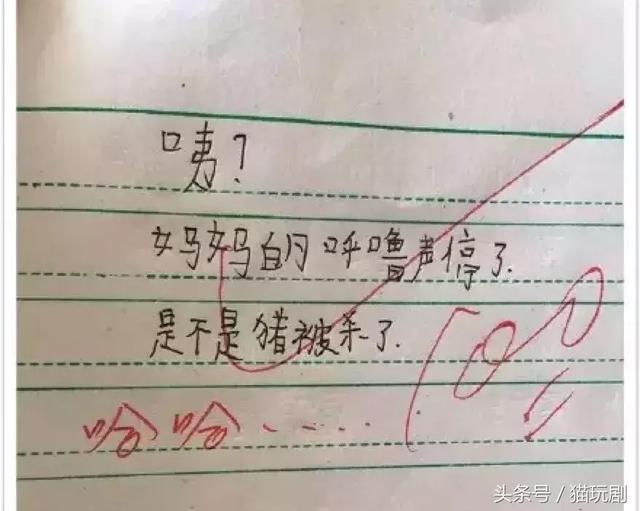 咦?
妈妈的呼噜声停了.
是不是猪被杀了.
100
哈哈......
头条号/猫玩剧